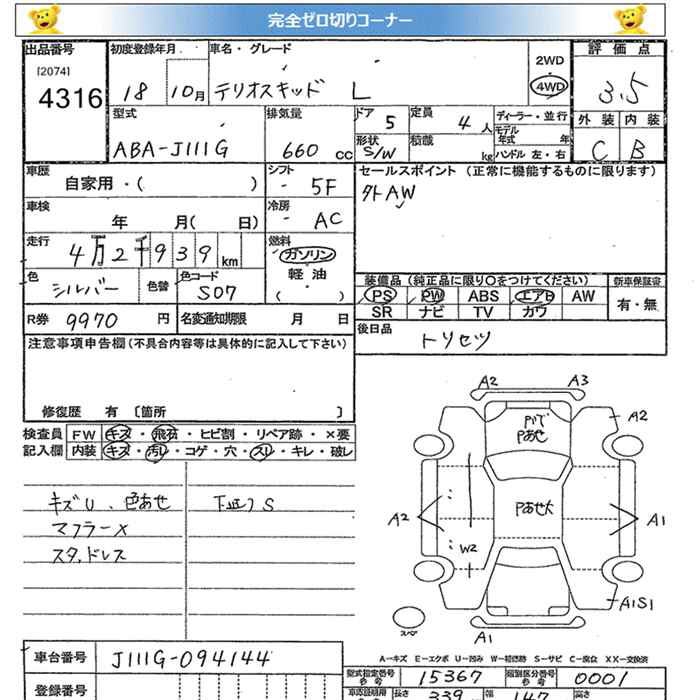 完全ゼロ切りコーナー
出品番号 初度登録年月 車名・グレード 2WD 評価点
[2074] 4316 18 10月 テリオスキッド L 4WD 3.5
型式 排気量 ドア 5 定員 4 人 ディーラー・並行 外装 内装
モデル年式 年
ABA-J111G 660 cc 形状 S/W 積載 kg ハンドル 左・右 C B
車歴 シフト セールスポイント (正常に機能するものに限ります)
自家用・( ) 5F 外AW
車検 冷房
年 月( 日) AC
走行 燃料
4万2千939km ガソリン
軽油
( )
色 シルバー 色替 色コード S07
装備品(純正品に限り〇をつけてください) 新車保証書
PS PW ABS エアB AW 有・無
SR ナビ TV カワ
R券 9970 円 名変通知期限 月 日
後日品 トリセツ
注意事項申告欄(不具合内容等は具体的に記入して下さい)
修復歴 有 〔箇所 〕
検査員 FW キズ・飛石・ヒビ割・リペア跡・×要
記入欄 内装 キズ・汚レ・コゲ・穴・スレ・キレ・破レ
キズU、色あせ
マフラーX
スタッドレス
A2 A3
A2
Pあせ
A2 Pあせ大 A1
W2
A1S1
スペア
A1
A-キズ E-エクボ U-凹み W-補修跡 S-サビ C-腐食 XX-交換済
車台番号 J111G-094144
型式指定番号 15367 類別区分番号 0001
登録番号
長さ 339 幅 147 高さ